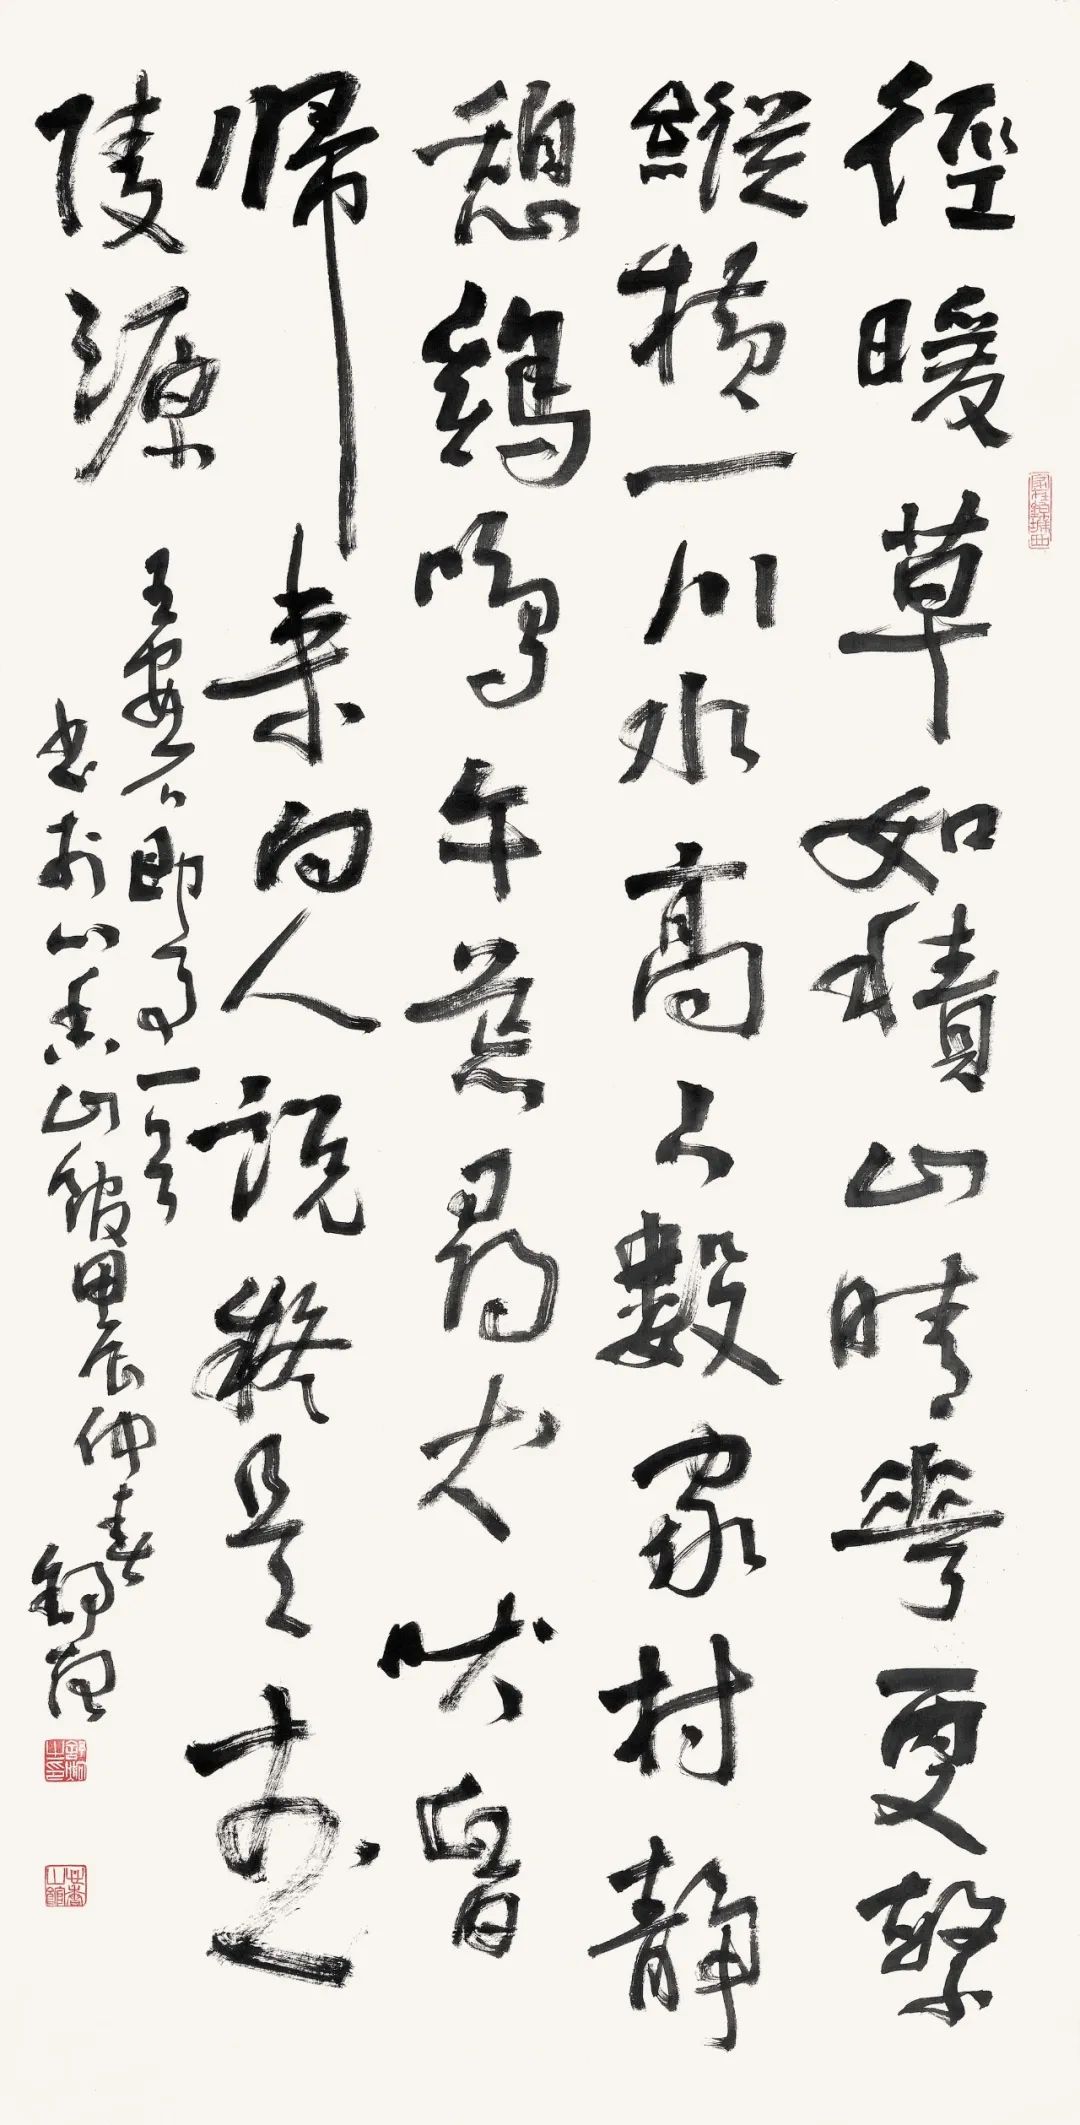 徑暖草如積山晴華更繁
縱橫一川水高下數家村静
憩鷄鳴午荒尋犬吠昬
歸来向人説疑是武
陵源
王安石即事一首
書於心香山館甲辰仲春